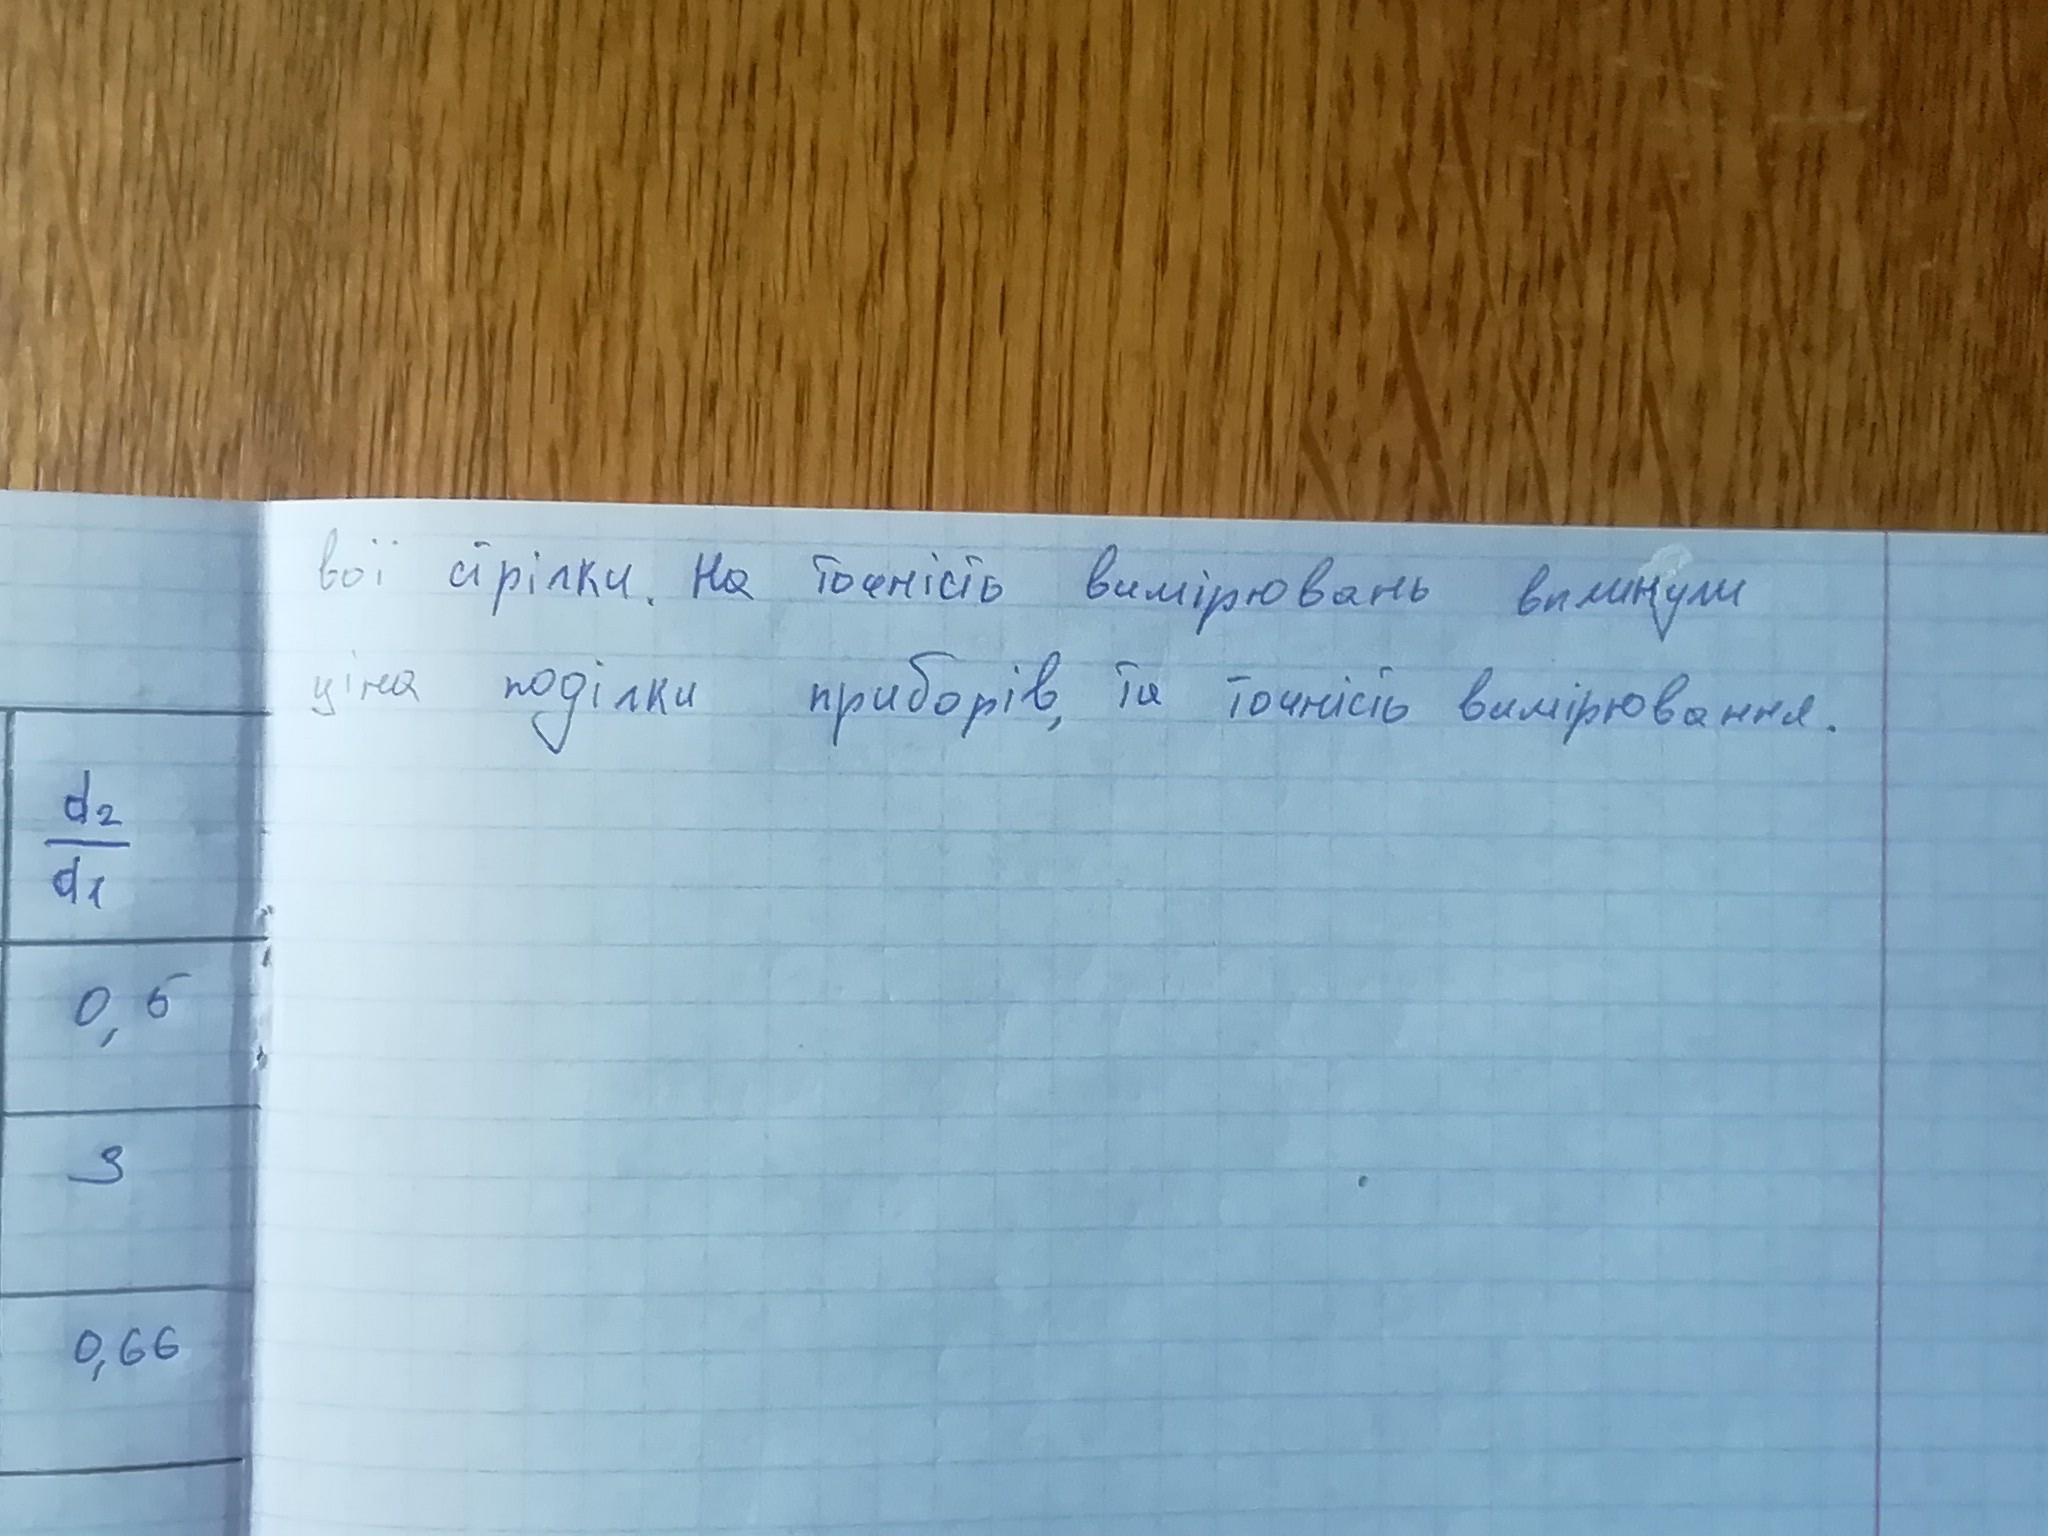 вої стрілки. На точність вимірювань вплинули
ціна поділки приборів, та точність вимірювання.
d2
d1
0,5
3
0,66